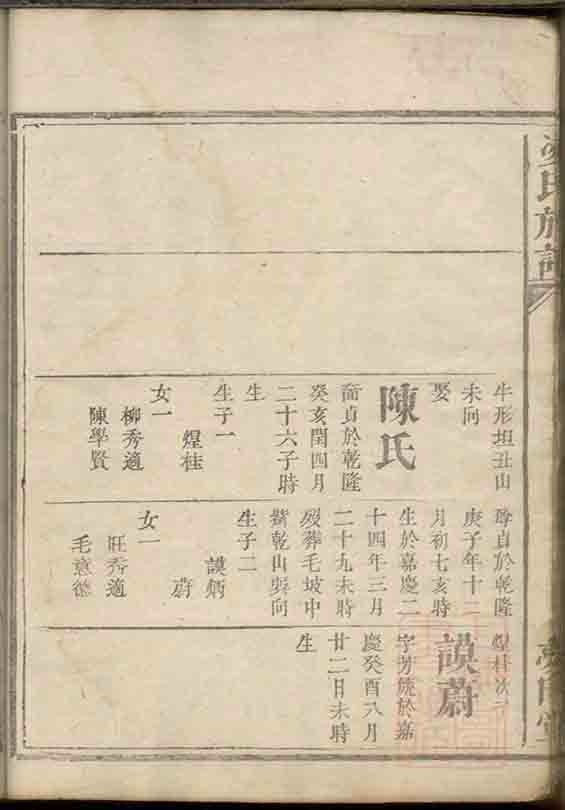 氏族譜
牛形坦丑山
未向
娶
陳氏
裔貞於乾隆
癸亥閏四月
二十六子時
生
生子一
煋桂
女一
柳秀適
陳學賢
貞於乾隆
庚子年十二
月初七亥時
生於嘉慶二
十四年三月
二十九未時
歿葬毛坡中
乾山巽向
生子二
謨炳
蔚
女一
旺秀適
毛意德
煋桂次子
謨蔚
字芳於嘉
慶癸酉八月
廿二日未時
生
堂